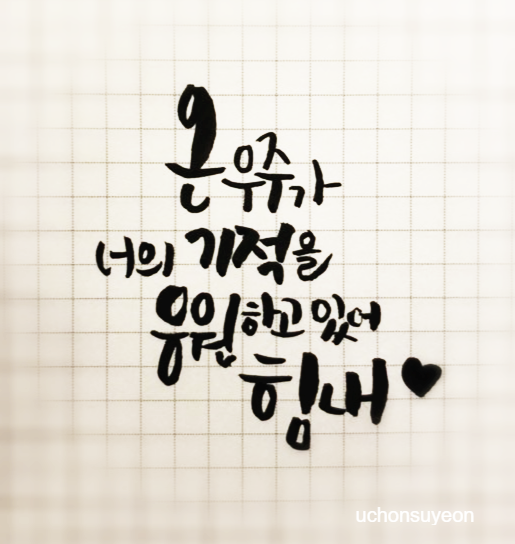 온 우주가
너의 기적을
응원하고 있어
힘내♥
uchonsuyeon